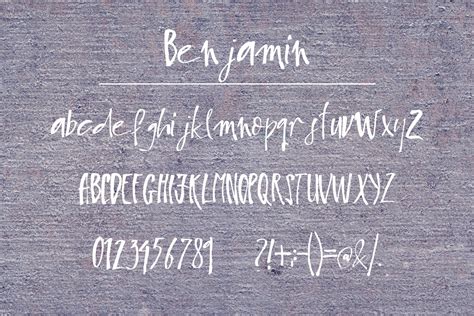 Benjamin
abcdefghijklmnopqrstuvwxyz
ABCDEFGHIJKLMNOPQRSTUVWXYZ
0123456789
?!+;-()=@&/.